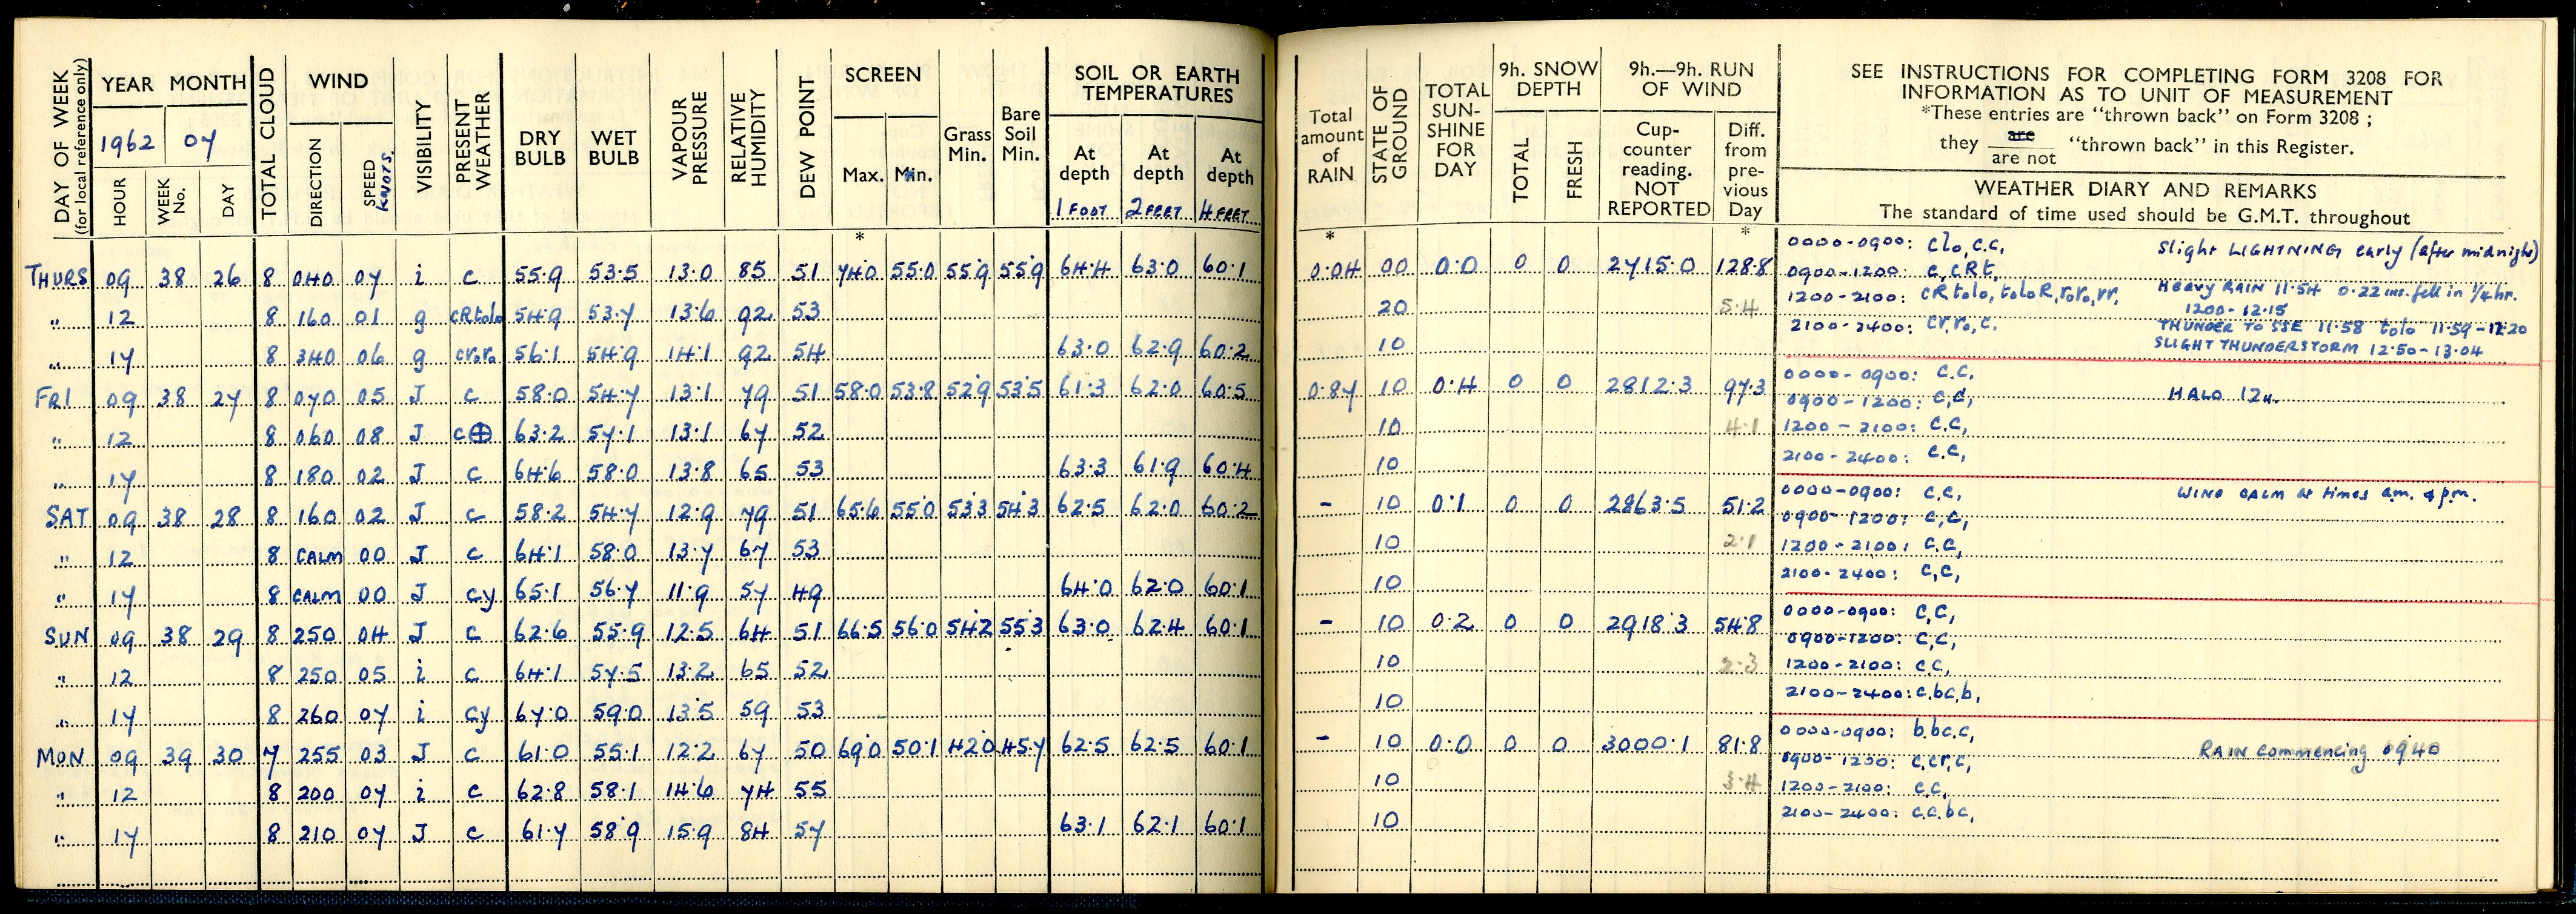 DAY OF WEEK (for local reference only)
YEAR MONTH
1962 07
HOUR WEEK No. DAY
TOTAL CLOUD
WIND
DIRECTION SPEED KNOTS.
VISIBILITY
PRESENT WEATHER
DRY BULB
WET BULB
VAPOUR PRESSURE
RELATIVE HUMIDITY
DEW POINT
SCREEN
Max. Min.
Grass Min.
Bare Soil Min.
SOIL OR EARTH TEMPERATURES
At depth At depth At depth
1 FOOT 2 FEET 4 FEET
Total amount of RAIN
STATE OF GROUND
TOTAL SUN-SHINE FOR DAY
9h. SNOW DEPTH
TOTAL FRESH
9h.—9h. RUN OF WIND
Cup-counter reading. NOT REPORTED
Diff. from pre-vious Day
SEE INSTRUCTIONS FOR COMPLETING FORM 3208 FOR
INFORMATION AS TO UNIT OF MEASUREMENT
*These entries are "thrown back" on Form 3208 ;
they are / are not "thrown back" in this Register.
WEATHER DIARY AND REMARKS
The standard of time used should be G.M.T. throughout
* * *
THURS 09 38 26 8 040 07 i c 55.9 53.5 13.0 85 51 74.0 55.0 55.9 55.9 64.4 63.0 60.1 0.04 00 0.0 0 0 2715.0 128.8
0000-0900: Clo, C.C, Slight LIGHTNING early (after midnight)
0900-1200: C, CRt,
" 12 8 160 01 g cRtolo 54.9 53.7 13.6 92 53 20 5.4
1200-2100: CRtolo, toloR, roro, rr, Heavy RAIN 11.54 0.22 ins. fell in 1/4 hr.
1200-12.15
2100-2400: Cr, ro, C. THUNDER TO SSE 11.58 tolo 11.59-12.20
" 17 8 340 06 g croro 56.1 54.9 14.1 92 54 63.0 62.9 60.2 10
SLIGHT THUNDERSTORM 12.50-13.04
FRI 09 38 27 8 070 05 J c 58.0 54.7 13.1 79 51 58.0 53.8 52.9 53.5 61.3 62.0 60.5 0.87 10 0.4 0 0 2812.3 97.3
0000-0900: C.C,
0900-1200: C,C, HALO 12h.
" 12 8 060 08 J c⊕ 63.2 57.1 13.1 67 52 10 4.1
1200-2100: C.C,
" 17 8 180 02 J c 64.6 58.0 13.8 65 53 63.3 61.9 60.4 10
2100-2400: C.C,
SAT 09 38 28 8 160 02 J c 58.2 54.7 12.9 79 51 65.6 55.0 53.3 54.3 62.5 62.0 60.2 - 10 0.1 0 0 2863.5 51.2
0000-0900: C.C, WIND CALM at times am. & pm.
0900-1200: C,C,
" 12 8 CALM 00 J c 64.1 58.0 13.7 67 53 10 2.1
1200-2100: C.C,
" 17 8 CALM 00 J cy 65.1 56.7 11.9 57 49 64.0 62.0 60.1 10
2100-2400: C,C,
SUN 09 38 29 8 250 04 J c 62.6 55.9 12.5 64 51 66.5 56.0 54.2 55.3 63.0 62.4 60.1 - 10 0.2 0 0 2918.3 54.8
0000-0900: C,C,
0900-1200: C,C,
" 12 8 250 05 i c 64.1 57.5 13.2 65 52 10 2.3
1200-2100: C.C,
" 17 8 260 07 i cy 67.0 59.0 13.5 59 53 10
2100-2400: C.bc,b,
MON 09 39 30 7 255 03 J c 61.0 55.1 12.2 67 50 69.0 50.1 42.0 45.7 62.5 62.5 60.1 - 10 0.0 0 0 3000.1 81.8
0000-0900: b,bc.C,
0900-1200: C,cr,C, RAIN commencing 0940
" 12 8 200 07 i c 62.8 58.1 14.6 74 55 10 3.4
1200-2100: C.C,
" 17 8 210 07 J c 61.7 58.9 15.9 84 57 63.1 62.1 60.1 10
2100-2400: C.C.bc,